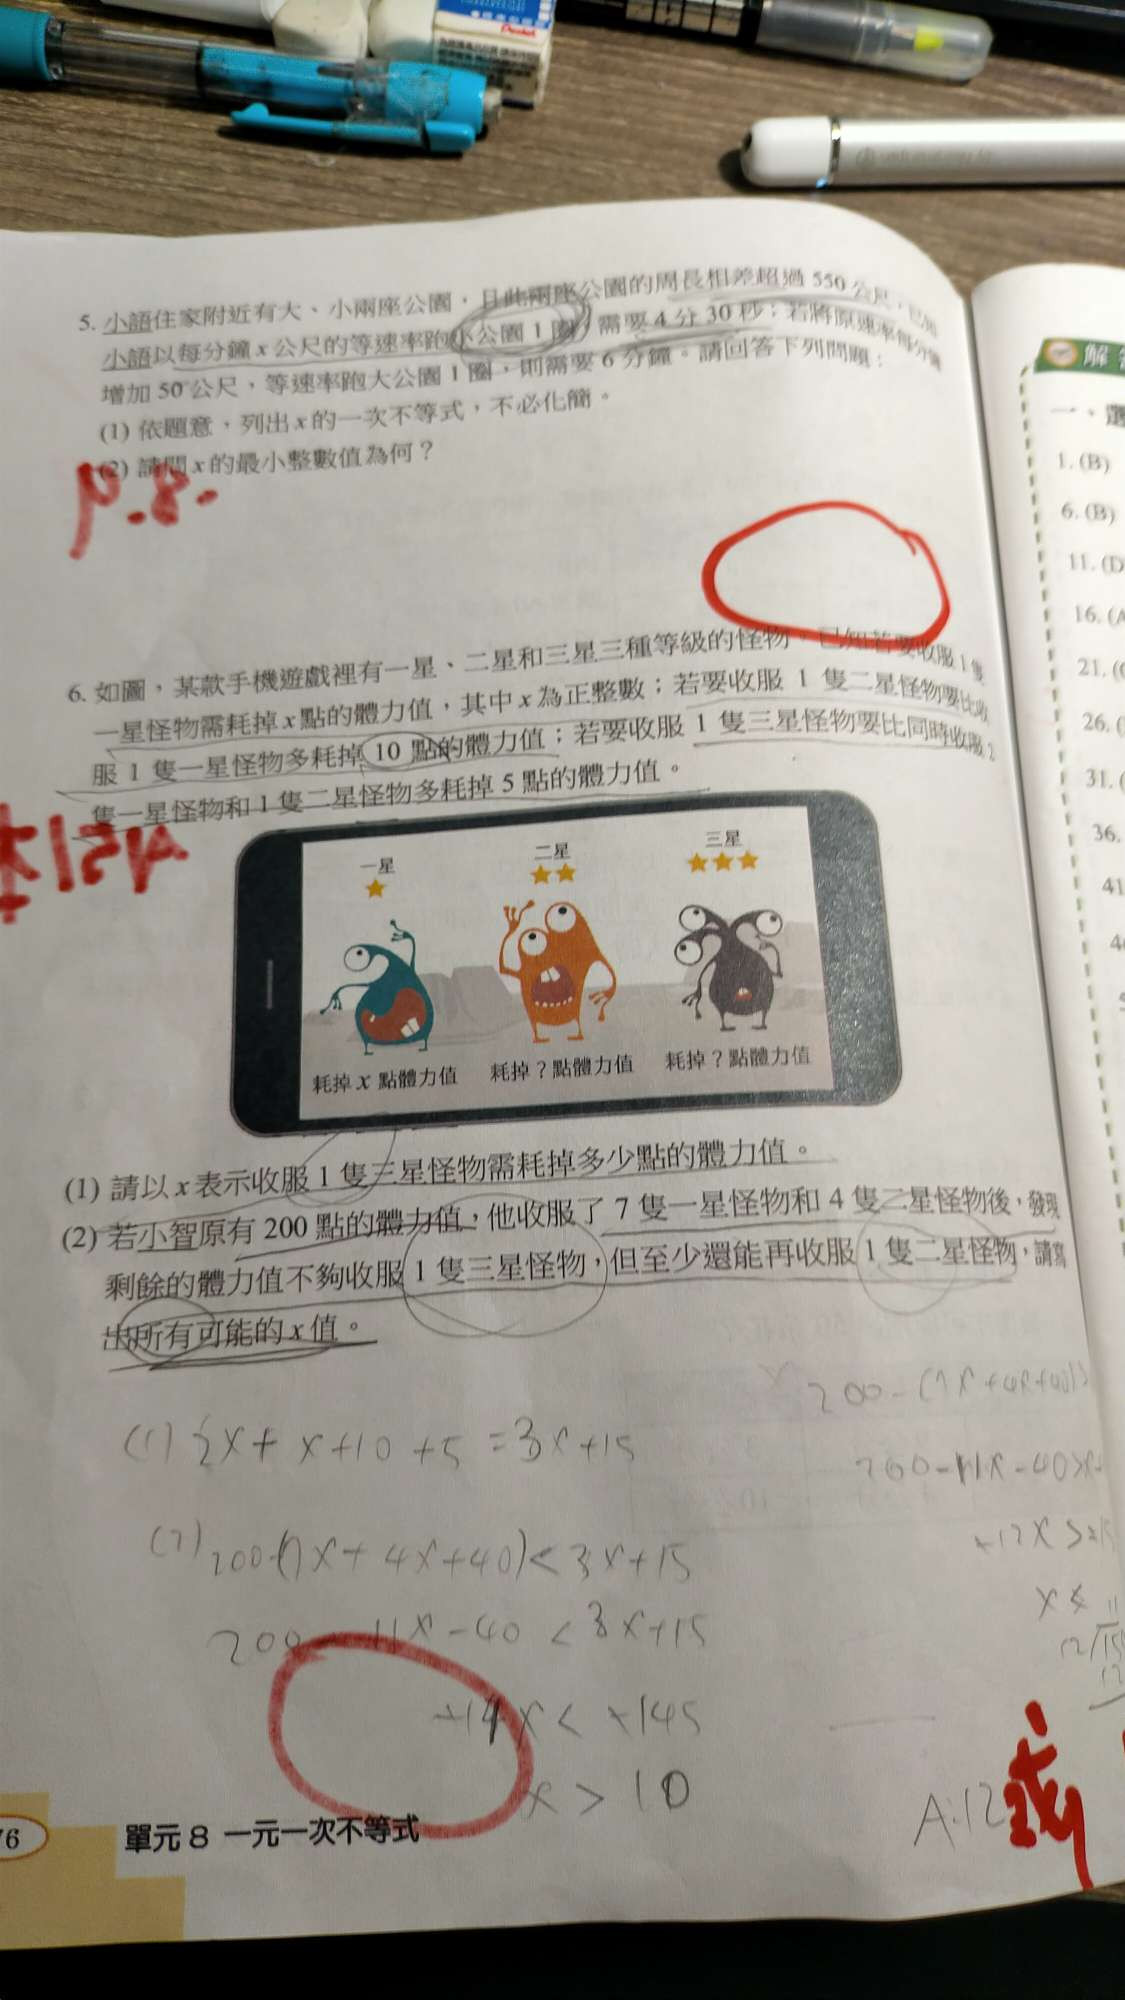 Pentel
5. 小語住家附近有大、小兩座公園，且此兩座公園的周長相差超過 550 公尺，已知
小語以每分鐘 x 公尺的等速率跑小公園 1 圈，需要 4 分 30 秒；若將原速率每分鐘
增加 50 公尺，等速率跑大公園 1 圈，則需要 6 分鐘。請回答下列問題：
(1) 依題意，列出 x 的一次不等式，不必化簡。
(2) 請問 x 的最小整數值為何？
6. 如圖，某款手機遊戲裡有一星、二星和三星三種等級的怪物。已知若要收服 1 隻
一星怪物需耗掉 x 點的體力值，其中 x 為正整數；若要收服 1 隻二星怪物要比收
服 1 隻一星怪物多耗掉 10 點的體力值；若要收服 1 隻三星怪物要比同時收服 2
隻一星怪物和 1 隻二星怪物多耗掉 5 點的體力值。
一星
二星
三星
耗掉 x 點體力值
耗掉 ? 點體力值
耗掉 ? 點體力值
(1) 請以 x 表示收服 1 隻三星怪物需耗掉多少點的體力值。
(2) 若小智原有 200 點的體力值，他收服了 7 隻一星怪物和 4 隻二星怪物後，發現
剩餘的體力值不夠收服 1 隻三星怪物，但至少還能再收服 1 隻二星怪物，請寫
出所有可能的 x 值。
(1) 2x + x+10 +5 = 3x+15
(2) 200-(7x+4x+40)<3x+15
200-11x-40<3x+15
+14x<+145
x>10
200-(7x+4x+40)
200-11x-40
A:12
或
76
單元 8 一元一次不等式
解
一、選
1. (B)
6. (B)
11. (D
16. (A
21. (
26. (
31. (
36.
41